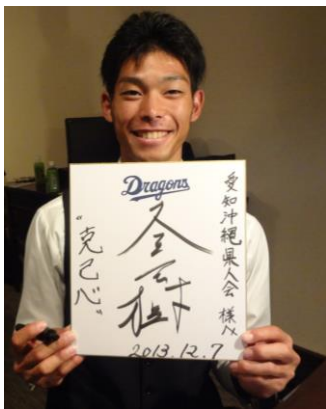 Dragons
愛知沖縄県人会 様へ
"克己心"
2013.12.7